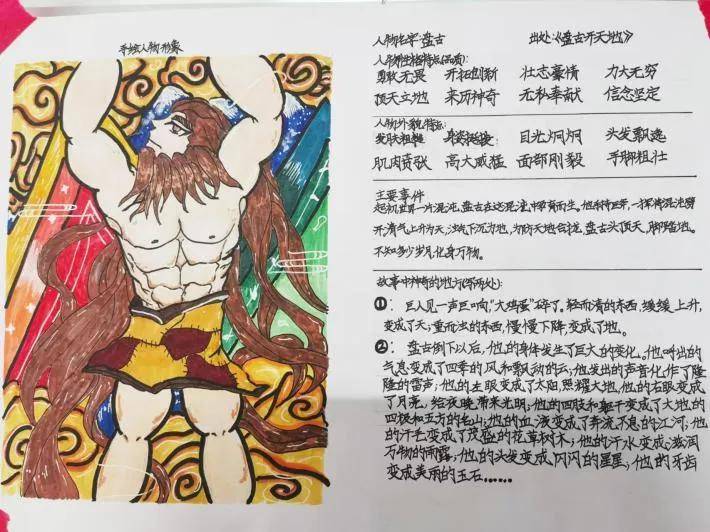 手绘人物形象
人物名字:盘古 出处:《盘古开天地》
人物性格特点(品质):
勇敢无畏 开拓创新 壮志豪情 力大无穷
顶天立地 来历神奇 无私奉献 信念坚定
人物外貌特点:
皮肤粗糙 身姿挺拔 目光炯炯 头发飘逸
肌肉贲张 高大威猛 面部刚毅 手脚粗壮
主要事件
起初世界一片混沌,盘古在这混沌中孕育而生。他手持巨斧,一挥将混沌劈
开,清气上升为天,浊气下沉为地,为防天地合拢,盘古头顶天,脚踏地。
不知多少岁月化身万物。
故事中神奇的地方(写两处):
①:巨人见一声巨响,“大鸡蛋”碎了。轻而清的东西,缓缓上升,
变成了天;重而浊的东西,慢慢下降,变成了地。
②:盘古倒下以后,他的身体发生了巨大的变化。他呼出的
气息变成了四季的风和飘动的云;他发出的声音化作了隆
隆的雷声;他的左眼变成了太阳,照耀大地,他的右眼变成
了月亮,给夜晚带来光明;他的四肢和躯干变成了大地的
四极和五方的名山;他的血液变成了奔流不息的江河;他
的汗毛变成了茂盛的花草树木;他的汗水变成了滋润
万物的雨露;他的头发变成闪闪的星星;他的牙齿
变成美丽的玉石……